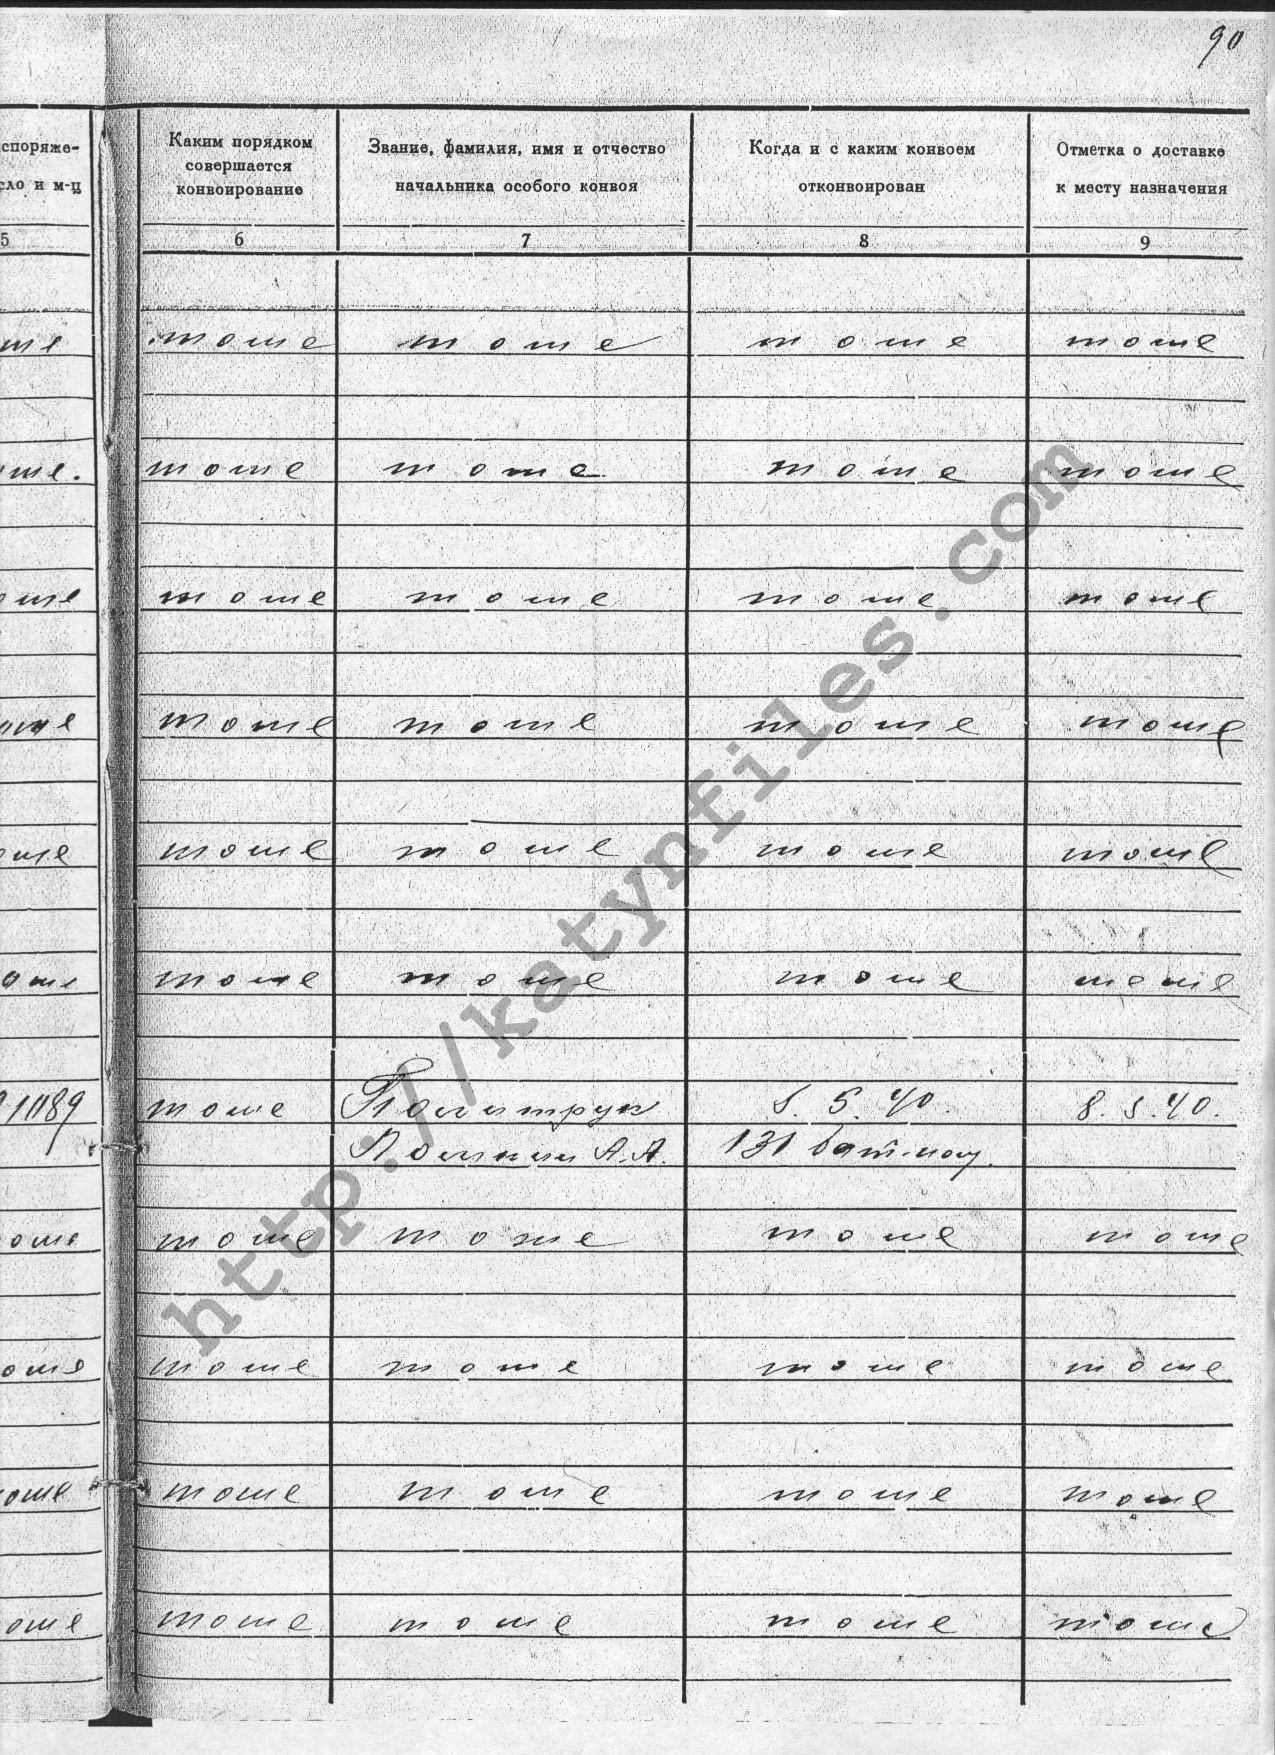 90
споряже-
сло и м-ц
Каким порядком
совершается
конвоирование
Звание, фамилия, имя и отчество
начальника особого конвоя
Когда и с каким конвоем
отконвоирован
Отметка о доставке
к месту назначения
5 6 7 8 9
тоже тоже тоже тоже
тоже тоже тоже тоже
тоже тоже тоже тоже
тоже тоже тоже тоже
тоже тоже тоже тоже
тоже тоже тоже тоже
11189 тоже Политрук 5. 5. 40. 8. 5. 40.
А.А. 131
тоже тоже тоже тоже
тоже тоже тоже тоже
тоже тоже тоже тоже
тоже тоже тоже тоже
http://katynfiles.com